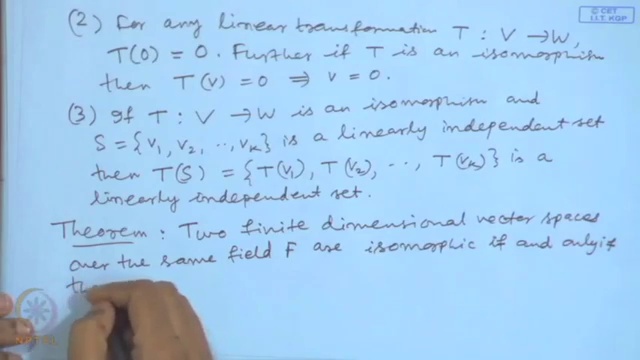 © CET
I.I.T. KGP
(2) For any linear transformation T : V → W,
T(0) = 0. Further if T is an isomorphism
then T(v) = 0 ⇒ v = 0.
(3) If T : V → W is an isomorphism and
S = {v₁, v₂, .., vₖ} is a linearly independent set
then T(S) = {T(v₁), T(v₂), .., T(vₖ)} is a
linearly independent set.
Theorem : Two finite dimensional vector spaces
over the same field F are isomorphic if and only if
the
NPTEL